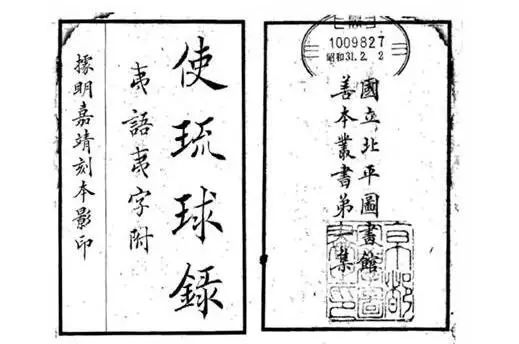 1009827
昭和31.2.2
國立北平圖書館
善本叢書弟一集
使琉球錄
夷語夷字附
據明嘉靖刻本影印